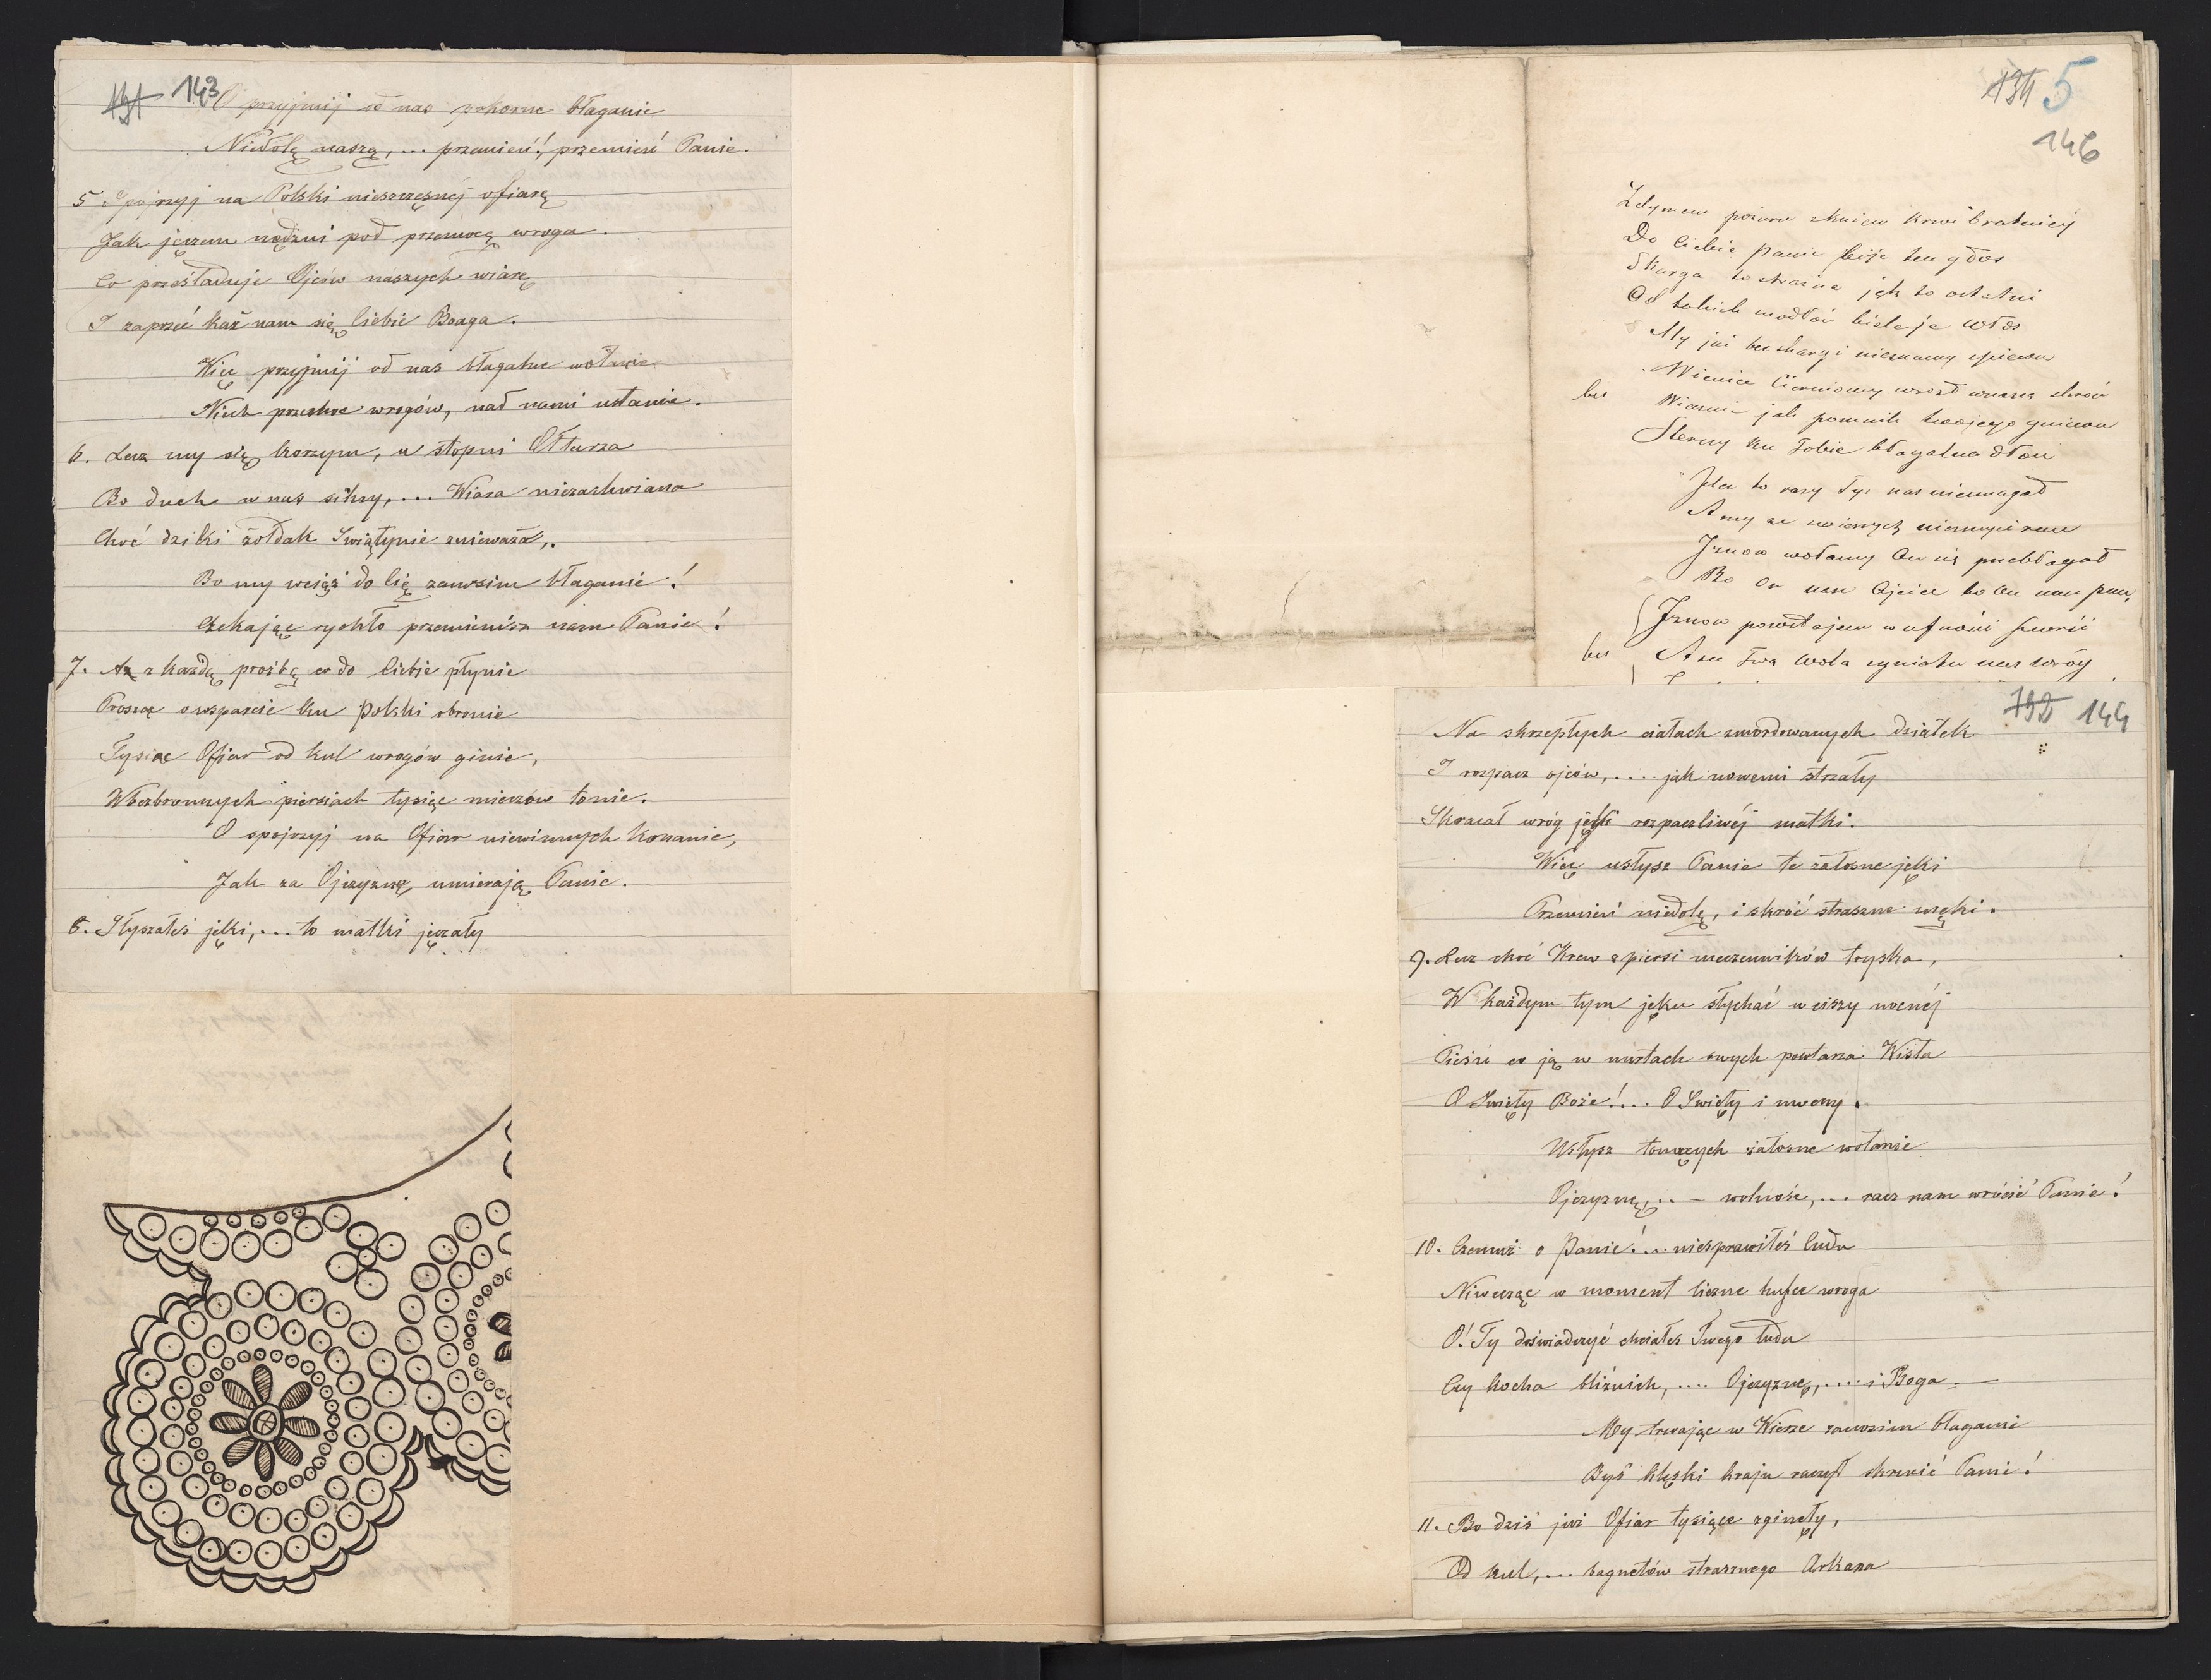 131 143
O przyjmij od nas pokorne błaganie
Niedolę naszą, ... przemień!, przemień Panie.
5 Spojrzyj na Polski nieszczęsnéj ofiarę
Jak jęczem nędzni pod przemocą wroga.
Co prześladuje Ojców naszych wiarę
I zaprzéć każ nam się Ciebie Boaga.
Więc przyjmij od nas błagalne wołanie
Niech przemoc wrogów, nad nami ustanie.
6. Lecz my się korzym, u stopni Ołtarza
Bo duch w nas silny, ... Wiara niezachwiana
Choć dziki żołdak Swiątynie znieważa,.
Bo my wciąż do Cię zanosim błaganie!
Czekając rychło przemienisz nam Panie!
7. Az z każdą prośbą co do Ciebie płynie
Prosząc o wsparcie ku Polski obronie
Tysiąc Ofiar od kul wrogów ginie,
W bezbronnych piersiach tysiąc mieczów tonie.
O spojrzyj na Ofiar niewinnych konanie,
Jak za Ojczyznę umierają Panie.
8. Słyszałeś jęki, ... to matki jęczały
134 5
146
Z dymem pożaru z kurzem krwi bratniéj
Do Ciebie Panie bije ten głos
Skarga to straszna jęk to ostatni
Od takich modłów bieleje włos
My już bez skargi nieznamy śpiewu
Wieniec Cierniowy wrósł w naszą skroń
bis Wiecznie jak pomnik twojego gniewu
Sterczy ku Tobie błagalna dłoń
Ileż to razy Tyś nas niesmagał
A my ze swieżych nieobmyci ran
Iznow wołamy On się przebłagał
Bo On nasz Ojciec bo On nasz pan,
Iznow powstajem w ufności szersi
bis A za Twą wolą zgniata nas wróg
132 144
Na skrzepłych ciałach zmordowanych dziatek
I rozpacz ojców, ..... jak nowemi strzały
Skracał wróg jęki rozpaczliwéj matki.
Więc usłysz Panie te żałosne jęki
Przemień niedolę, i skróć straszne męki.
9. Lecz choć Krew z piersi męczenników tryska,
W każdym tym jęku słychać w ciszy nocnéj
Pieśń co ją w nurtach swych powtarza Wisła
O Swięty Boże! ... O Swięty i mocny.
Usłysz tonących żałosne wołanie
Ojczyznę, .. – wolność, ... racz nam wrócić Panie!
10. Czemuż o Panie! .. niesprawiłeś Cudu
Niwecząc w moment liczne hufce wroga
O! Ty doświadczyć chciałeś Twego ludu
Czy kocha bliźnich, .... Ojczyznę, .... i Boga. —
My trwając w Wierze zanosim błagania
Byś klęski kraju raczył skrócić Panie!
11. Bo dziś już Ofiar tysiące zginęły,
Od kul, ... bagnetów strasznego Arkana